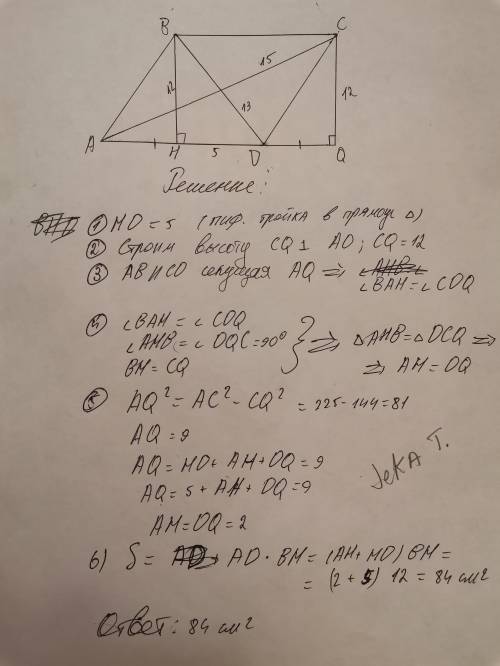 B
C
15
12
13
12
A
H
5
D
Q
Решение:
① HD = 5 (пиф. тройка в прямоуг △)
② Строим высоту CQ ⊥ AD; CQ = 12
③ AB || CD секущая AQ ⇒ ∠BAH = ∠CDQ
④ ∠BAH = ∠CDQ
∠AHB = ∠DQC = 90° ⇒ △AHB = △DCQ ⇒
BH = CQ ⇒ AH = DQ
⑤ AQ² = AC² - CQ² = 225 - 144 = 81
AQ = 9
AQ = HD + AH + DQ = 9
JeKA T.
AQ = 5 + AH + DQ = 9
AH = DQ = 2
6) S = AD · BH = (AH + HD) BH =
= (2 + 5) 12 = 84 см²
Ответ: 84 см²